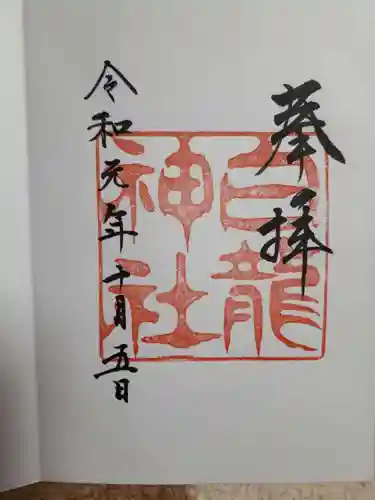 奉拝
白龍
神社
令和元年十月五日